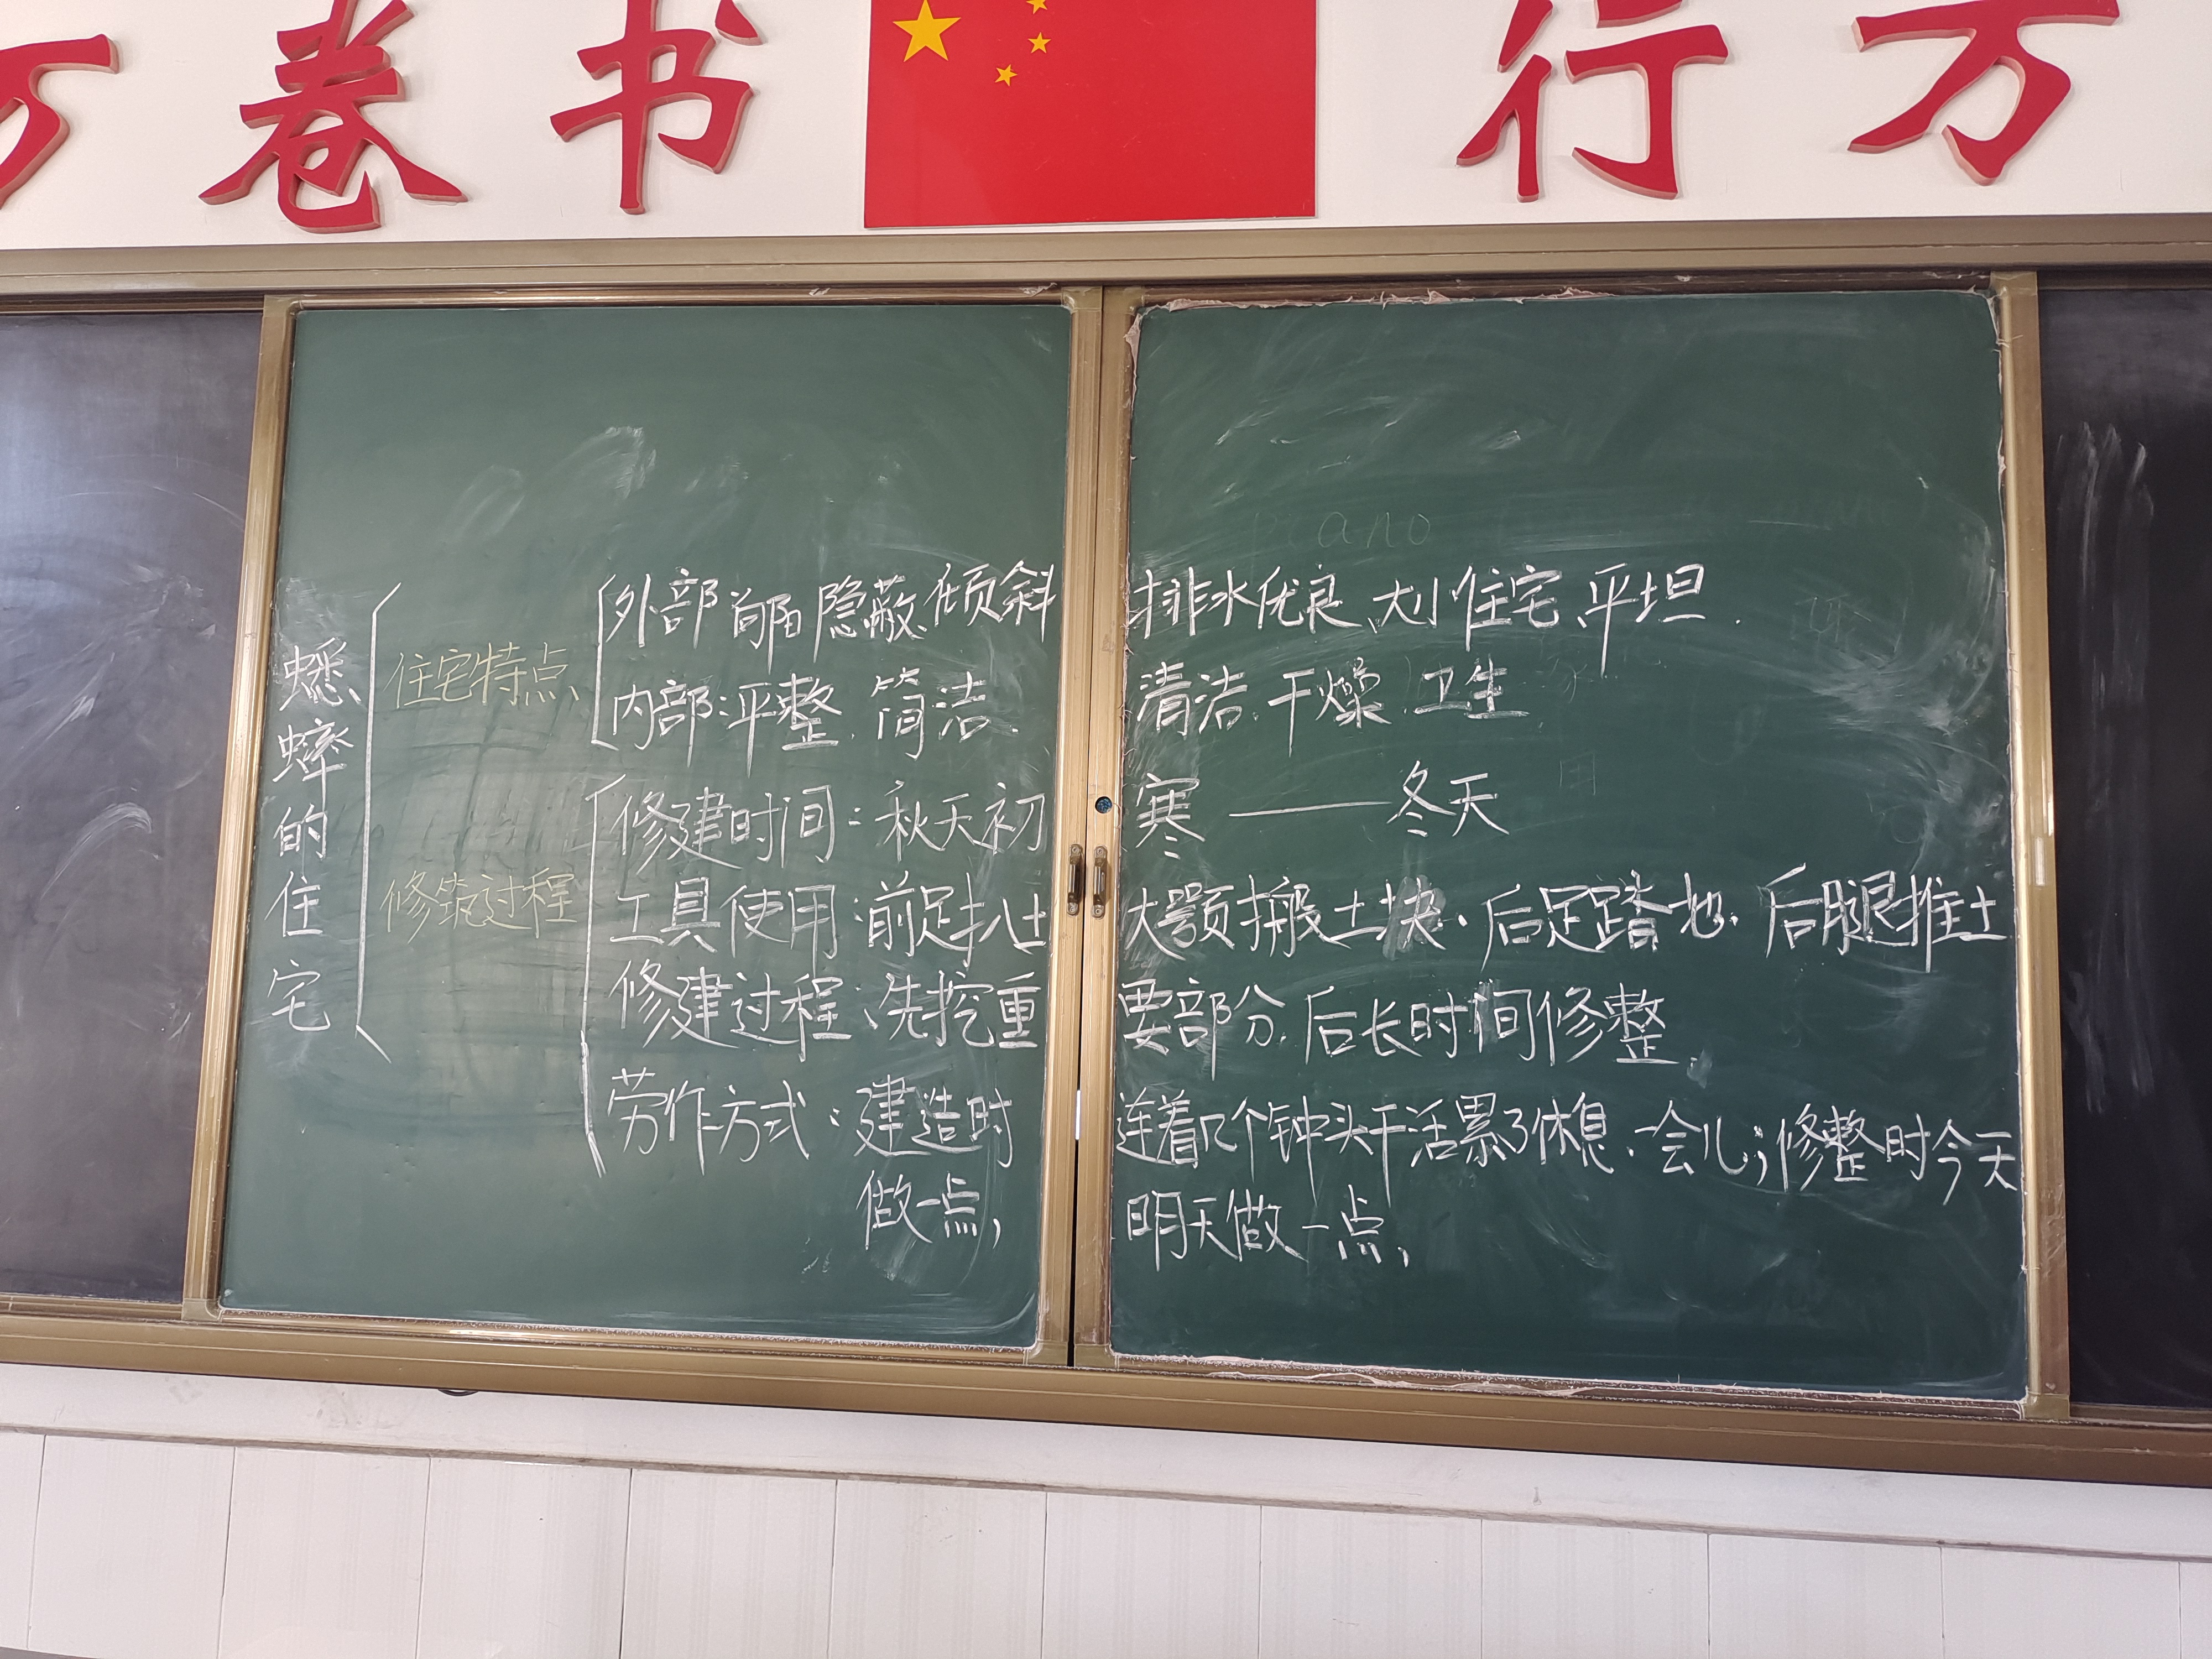 万卷书 行万
蟋蟀的住宅
住宅特点
外部 向阳 隐蔽、倾斜 排水优良、大小 住宅、平坦.
内部:平整. 简洁. 清洁. 干燥. 卫生
修筑过程
修建时间:秋天初寒——冬天
工具使用:前足扒土 大颚搬土块. 后足踏地. 后腿推土
修建过程:先挖重要部分. 后长时间修整.
劳作方式:建造时连着几个钟头干活累了休息.一会儿;修整时今天
做一点, 明天做一点,
ano